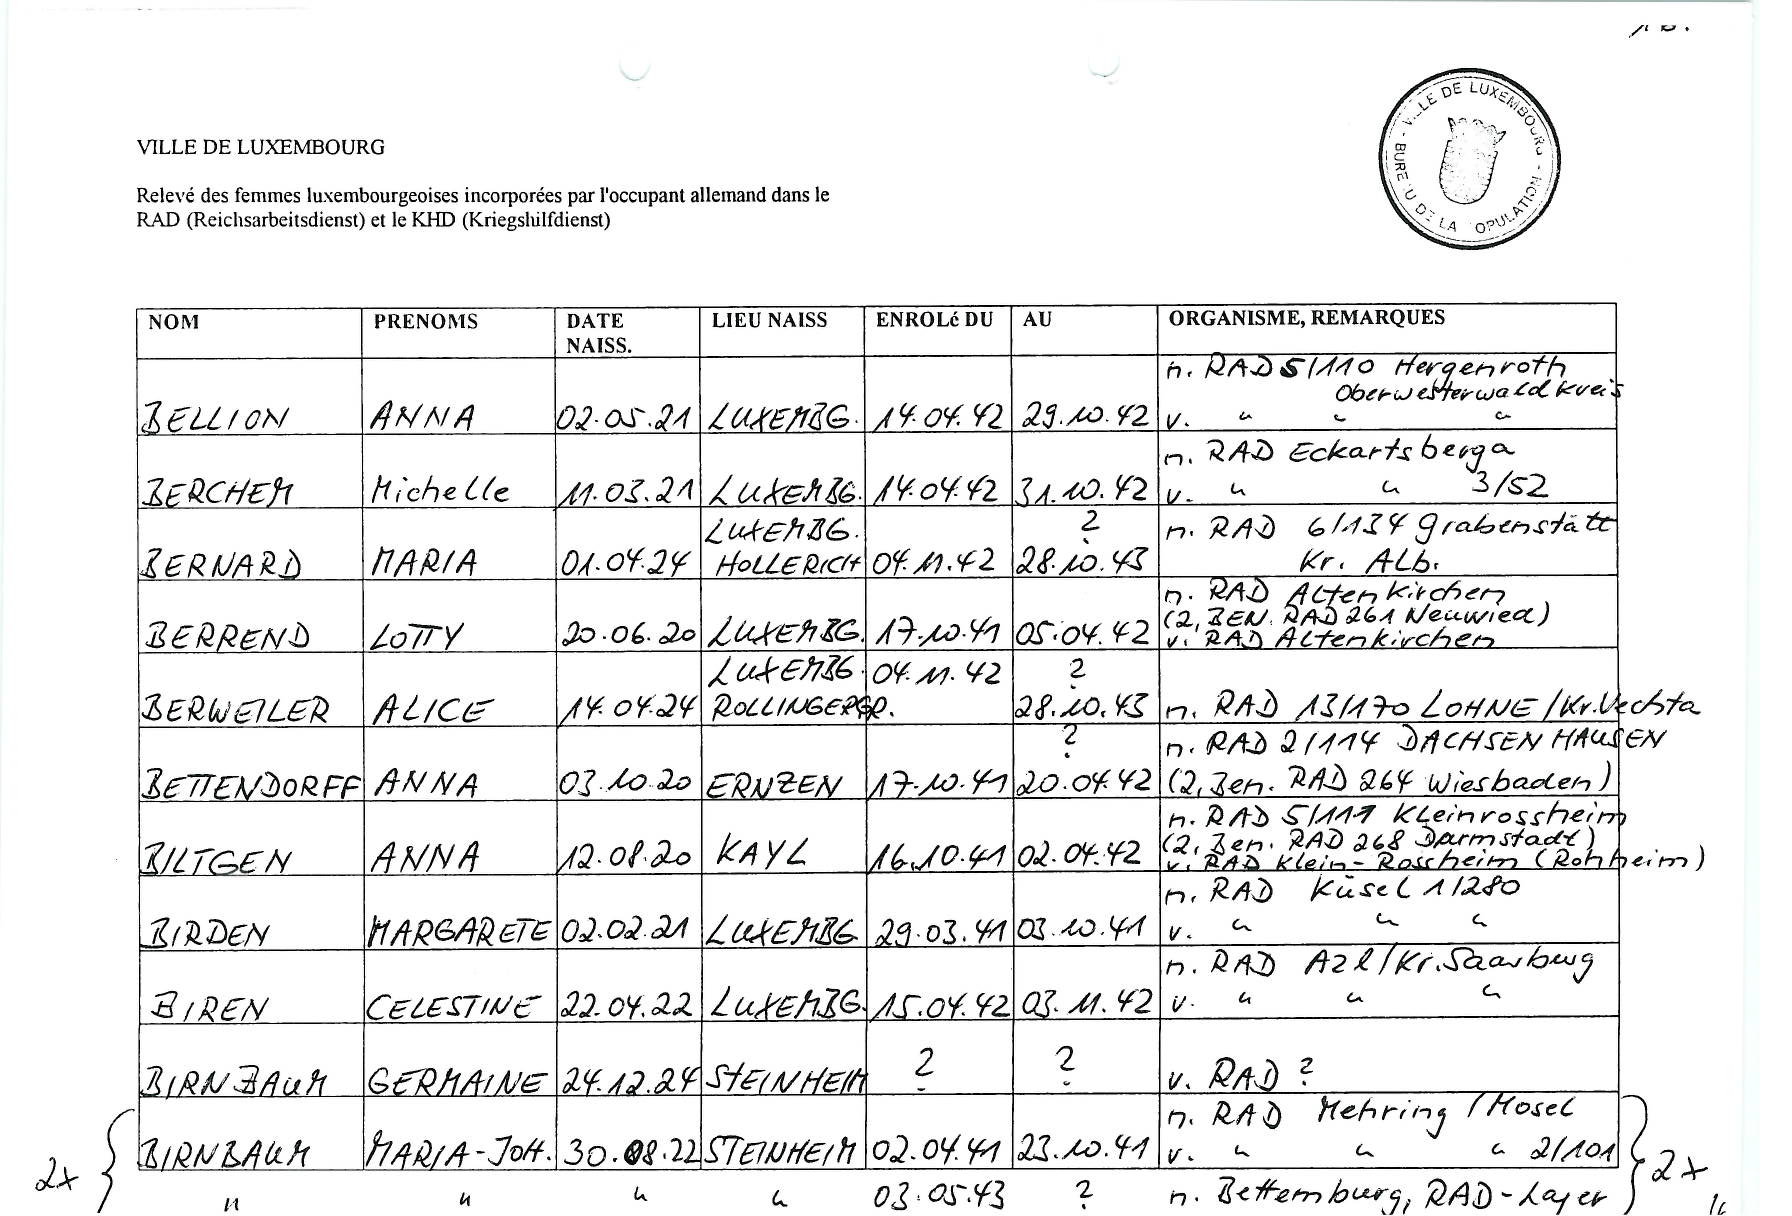 VILLE DE LUXEMBOURG
VILLE DE LUXEMBOURG - BUREAU DE LA POPULATION -
Relevé des femmes luxembourgeoises incorporées par l'occupant allemand dans le
RAD (Reichsarbeitsdienst) et le KHD (Kriegshilfdienst)
NOM PRENOMS DATE NAISS. LIEU NAISS ENROLé DU AU ORGANISME, REMARQUES
n. RAD 5/110 Hergenroth
Oberwesterwaldkreis
BELLION ANNA 02.05.21 LUXEMBG. 14.04.42 29.10.42 v. " " "
n. RAD Eckartsberga
BERCHEM Michelle 11.03.21 LUXEMBG. 14.04.42 31.10.42 v. " " 3/52
LUXEMBG. ? n. RAD 6/134 Grabenstätt
BERNARD MARIA 01.04.24 HOLLERICH 04.11.42 28.10.43 Kr. Alb.
n. RAD Altenkirchen
(2, BEN. RAD 261 Neuwied)
BERREND LOTTY 20.06.20 LUXEMBG. 17.10.41 05.04.42 v. RAD Altenkirchen
LUXEMBG. 04.11.42 ?
BERWEILER ALICE 14.04.24 ROLLINGERGR. 28.10.43 n. RAD 13/170 LOHNE/Kr.Vechta
? n. RAD 2/114 DACHSENHAUSEN
BETTENDORFF ANNA 03.10.20 ERNZEN 17.10.41 20.04.42 (2, Ben. RAD 264 Wiesbaden)
n. RAD 5/111 Kleinrossheim
(2, Ben. RAD 268 Darmstadt)
BILTGEN ANNA 12.08.20 KAYL 16.10.41 02.04.42 v. RAD Klein-Rossheim (Rohheim)
n. RAD Küsel 1/280
BIRDEN MARGARETE 02.02.21 LUXEMBG 29.03.41 03.10.41 v. " " "
n. RAD Azl/Kr.Saarburg
BIREN CELESTINE 22.04.22 LUXEMBG. 15.04.42 03.11.42 v. " " "
BIRNBAUM GERMAINE 24.12.24 STEINHEIM ? ? v. RAD ?
n. RAD Mehring/Mosel
BIRNBAUM MARIA-JOH. 30.08.22 STEINHEIM 02.04.41 23.10.41 v. " " " 2/101
2x " " " " 03.05.43 ? n. Bettemburg, RAD-Lager 2x